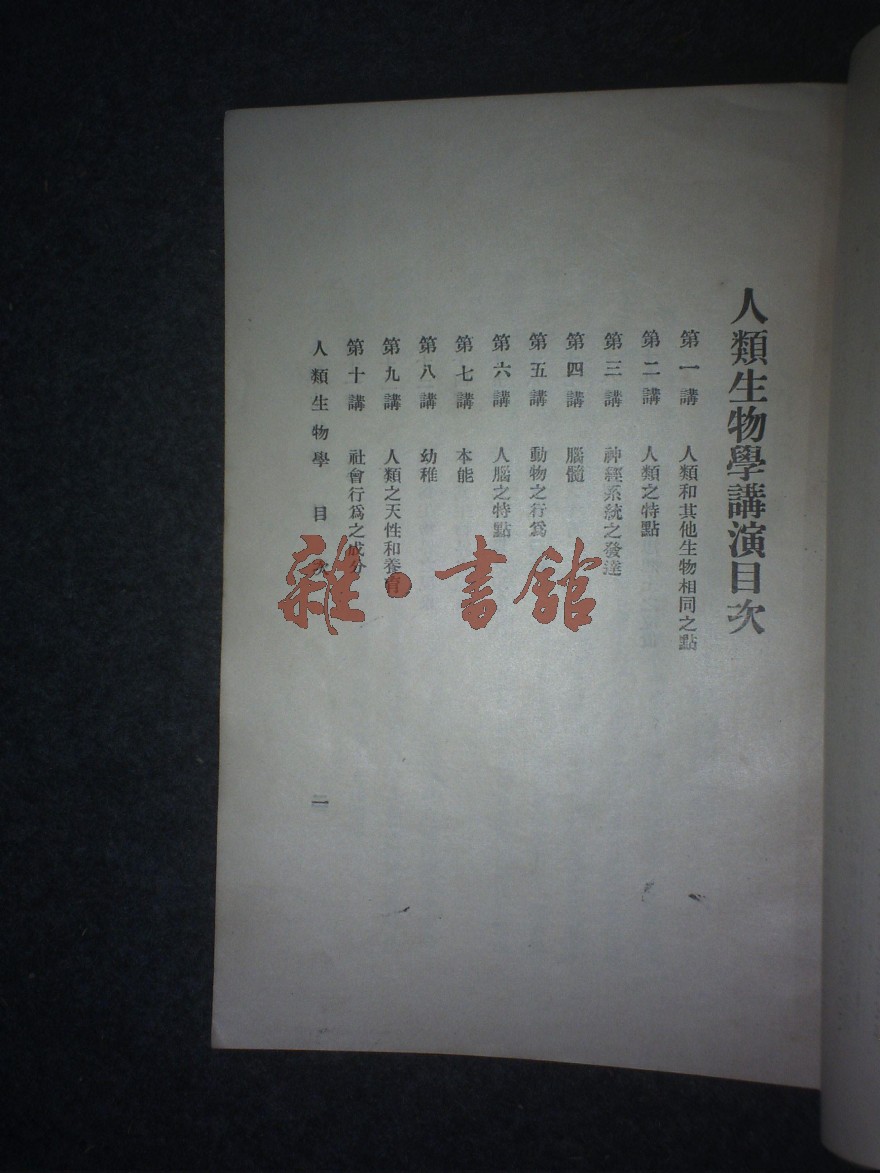 人類生物學講演目次
第一講 人類和其他生物相同之點
第二講 人類之特點
第三講 神經系統之發達
第四講 腦髓
第五講 動物之行爲
第六講 人腦之特點
第七講 本能
第八講 幼稚
第九講 人類之天性和養育
第十講 社會行爲之成分
人類生物學 目次 二
雜·書館